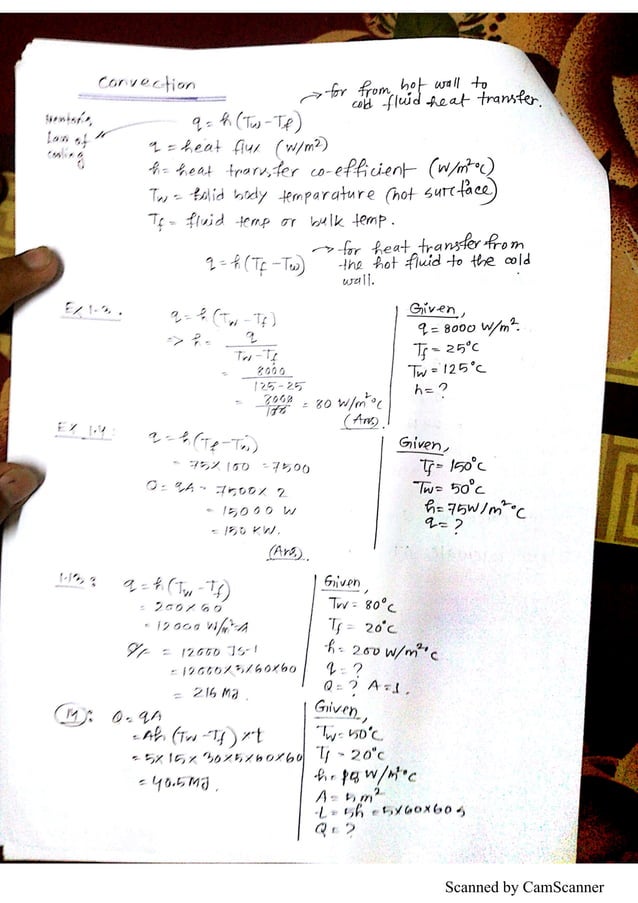 Convection
→ for from hot wall to
cold fluid heat transfer.
Newton's
Law of
cooling
q = h(Tw - Tf)
q = heat flux (W/m2)
h = heat transfer co-efficient (W/m2°C)
Tw = Solid body temparature (hot surface)
Tf = fluid temp or bulk temp.
q = h(Tf - Tw)
→ for heat transfer from
the hot fluid to the cold
wall.
Ex 1.3.
q = h(Tw - Tf)
=> h = q / Tw - Tf
= 8000 / 125 - 25
= 8000 / 100 = 80 W/m2°C
(Ans).
Given,
q = 8000 W/m2.
Tf = 25°C
Tw = 125°C
h = ?
Ex 1.4:
q = h(Tf - Tw)
= 75 x 100 = 7500
Q = qA = 7500 x 2
= 15000 W
= 150 KW.
(Ans).
Given,
Tf = 150°C
Tw = 50°C
h = 75W/m2°C
q = ?
1.13:
q = h(Tw - Tf)
= 200 x 60
= 12000
= 12000 Js-1
= 12000 x 5 x 60 x 60
= 216 MJ.
Given,
Tw = 80°C
Tf = 20°C
h = 200 W/m2°C
q = ?
Q = ? A = 1.
14: Q = qA
= Ah (Tw - Tf) x t
= 5 x 15 x 30 x 5 x 60 x 60
= 40.5 MJ.
Given,
Tw = 50°C
Tf = 20°C
h = W/m2°C
A = 5 m2
t = 5h = 5 x 60 x 60 s
Q = ?
Scanned by CamScanner